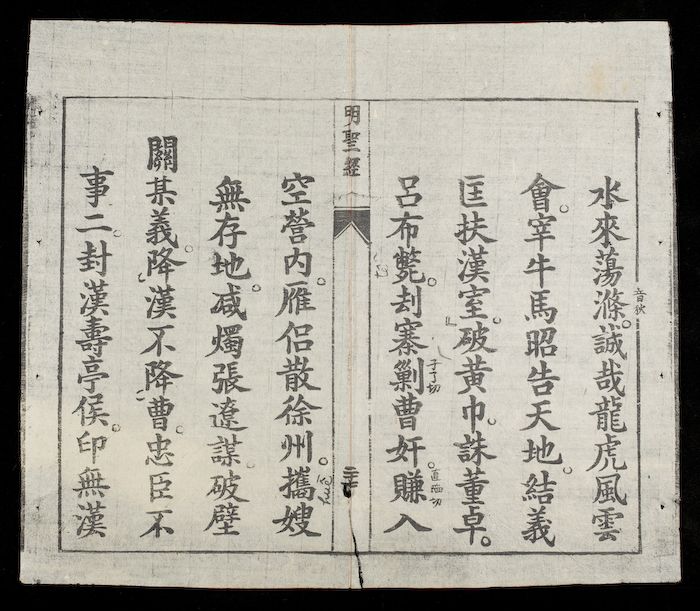 水來蕩滌。誠哉龍虎風雲
音狄
會。宰牛馬昭告天地。結義
匡扶漢室。破黃巾。誅董卓。
呂布斃。刦寨剿曹奸。賺入
子了切
直陷切
明聖經
二七
空營內。雁侶散徐州。攜嫂
無存地。滅燭張遼謀。破壁
關某義。降漢不降曹。忠臣不
事二。封漢壽亭侯。印無漢